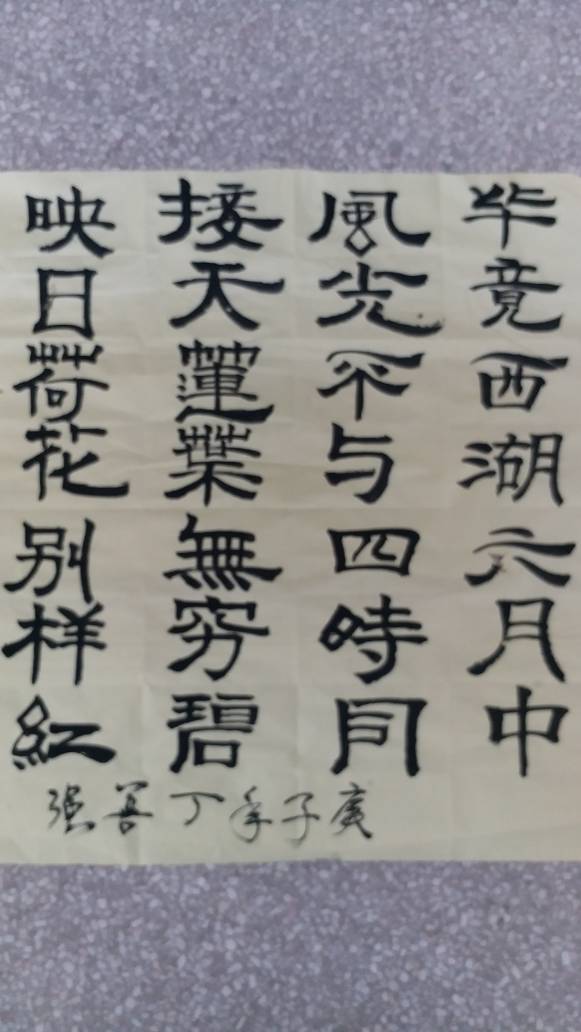 毕竟西湖六月中
風光不与四時同
接天蓮葉無穷碧
映日荷花别样红
庚子年丁善强